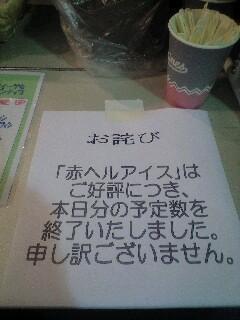 お詫び
「赤ヘルアイス」は
ご好評につき、
本日分の予定数を
終了いたしました。
申し訳ございません。